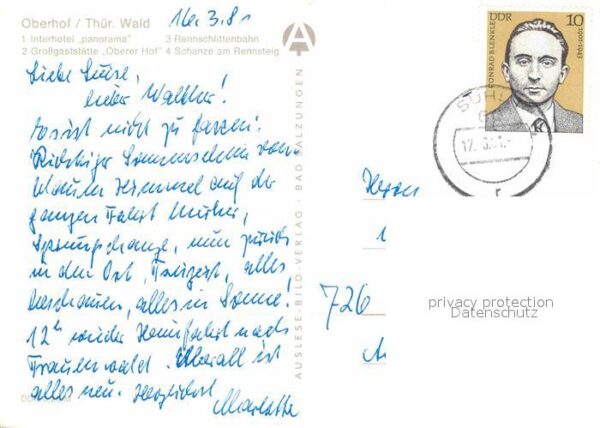 Oberhof / Thür. Wald
1 Interhotel „panorama"
2 Großgaststätte „Oberer Hof"
3 Rennschlittenbahn
4 Schanze am Rennsteig
16. 3. 81
Liebe Luise,
lieber Walther!
Es ist nicht zu fassen:
Sonnenschein von
blauem Himmel auf der
ganzen Fahrt hierher,
Sprungschanze, nun zurück
in den Ort, Freizeit, alles
beschauen, alles in Sonne!
12 h wieder Heimfahrt nach
Frauenwald. Überall ist
alles neu. Herzlichst
Marlotte
AUSLESE-BILD-VERLAG · BAD SALZUNGEN
DDR 10
CONRAD BLENKLE
1901-1943
SUHL
17.3.81
Herrn
726
privacy protection
Datenschutz